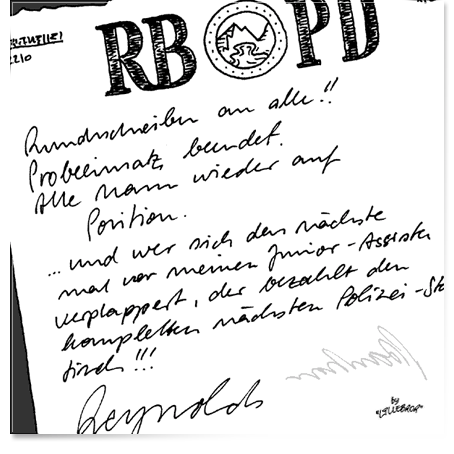 RB PD
Rundschreiben an alle!!
Probeeinsatz beendet.
Alle Mann wieder auf
Position.
...und wer sich das nächste
mal vor meinen Junior-Assisten
verplappert, der bezahlt den
kompletten nächsten Polizei-Sta
tisch!!!
Reynolds
by